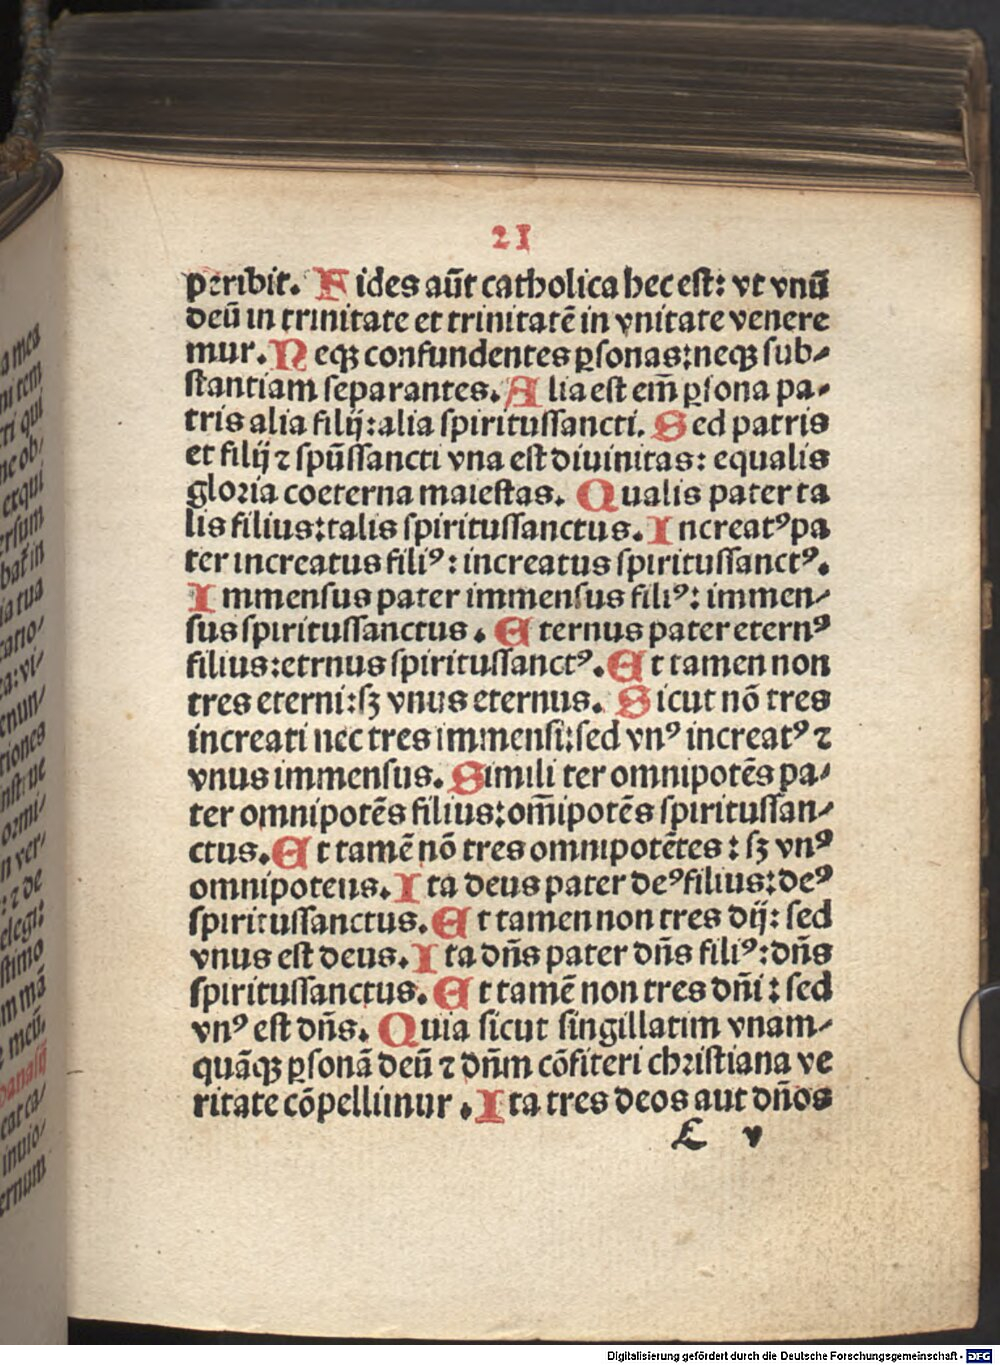 21
peribit. Fides aūt catholica hec est: vt vnū
deū in trinitate et trinitatē in vnitate venere
mur. Neqꝫ confundentes ꝑsonas: neqꝫ sub-
stantiam separantes. Alia est em̄ ꝑsona pa-
tris alia filij: alia spiritussancti. Sed patris
et filij ⁊ spūssancti vna est diuinitas: equalis
gloria coeterna maiestas. Qualis pater ta
lis filius: talis spiritussanctus. Increatꝰ pa
ter increatus filiꝰ: increatus spiritussanctꝰ.
Immensus pater immensus filiꝰ: immen-
sus spiritussanctus. Eternus pater eternꝰ
filius: etrnus spiritussanctꝰ. Et tamen non
tres eterni: sꝫ vnus eternus. Sicut nō tres
increati nec tres immensi: sed vnꝰ increatꝰ ⁊
vnus immensus. Simili ter omnipotēs pa-
ter omnipotēs filius: om̄ipotēs spiritussan-
ctus. Et tamē nō tres omnipotētes: sꝫ vnꝰ
omnipotens. Ita deus pater deꝰ filius: deꝰ
spiritussanctus. Et tamen non tres dij: sed
vnus est deus. Ita dn̄s pater dn̄s filiꝰ: dn̄s
spiritussanctus. Et tamē non tres dn̄i: sed
vnꝰ est dn̄s. Quia sicut singillatim vnam-
quāqꝫ ꝑsonā deū ⁊ dn̄m cōfiteri christiana ve
ritate cōpellimur. Ita tres deos aut dn̄os
v
a mea
ni rem
cti qui
ne ob-
exqui
ersum
bat in
ia tua
catio-
ea: vi-
enun-
tiones
ormi-
n ver-
: ⁊ de
elegi:
stimo
m mā
meū.
cat ca-
inuio-
ernum
Digitalisierung gefördert durch die Deutsche Forschungsgemeinschaft - DFG